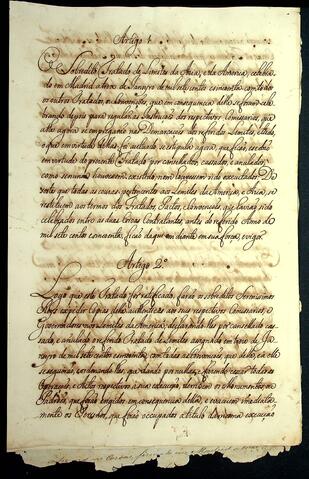 Artigo 1.
O Sobredito Tratado de Limites da Azia, e da America, celebra-
do em Madrid a treze de Janeiro de mil sete centos e sincoenta, com todos
os outros Tratados, e Convenções, que em consequencia delle se foraõ cele-
brando depois para regular as Instruções dos respectivos Comissarios, que
athe agora se empregaraõ nas Demarcações dos referidos Limites, e tudo
o que em virtude delles foi autuado, se estipula agora, que ficaõ, e se daõ
em virtude do prezente Tratado por cancelados, cassados, e anulados,
como se nunca houvessem existido, nem houvessem sido executados. De
sorte que todas as couzas pertencentes aos Limites da America, e Azia, se
restituem aos termos dos Tratados, Pactos, e Convenções, que haviaõ sido
celebrados entre as duas Coroas Contratantes, antes do referido Anno de
mil sete centos e sincoenta, ficaõ daqui em diante em sua força, e vigor.
Artigo 2.º
Logo que este Tratado for ratificado, faraõ os sobreditos Serenissimos
Reys expedir Copias delle authenticas aos seus respectivos Comissarios, e
Governadores nos Limites da America, declarando-lhes por cancelado, cas-
sado, e anulado o referido Tratado de Limites assignado em treze de Ja-
neiro de mil sete centos e sincoenta, com todas as Convenções, que delle, e a elle
se seguiraõ, e ordenando-lhes, que dando por nullas, e fazendo cessar todas as
Operações, e Actos respectivos á sua execuçaõ, derribem os Monumentos, ou
Padrões, que foraõ erigidos em consequencia della, e evacuem immediata-
mente os Terrenos, que foraõ occupados a titulo da mesma execuçaõ